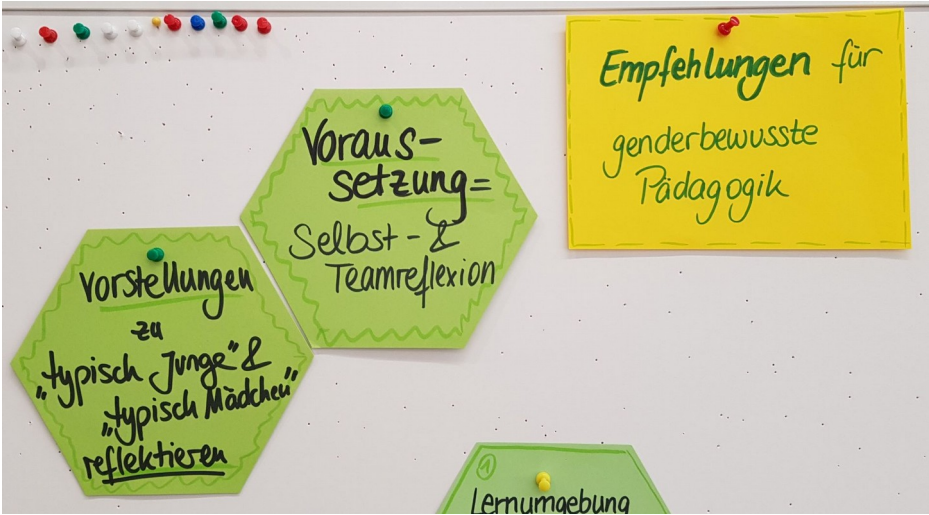 Empfehlungen für
genderbewusste
Pädagogik
Voraus-
setzung=
Selbst- &
Teamreflexion
Vorstellungen
zu
„typisch Junge" &
„typisch Mädchen"
reflektieren
1
Lernumgebung